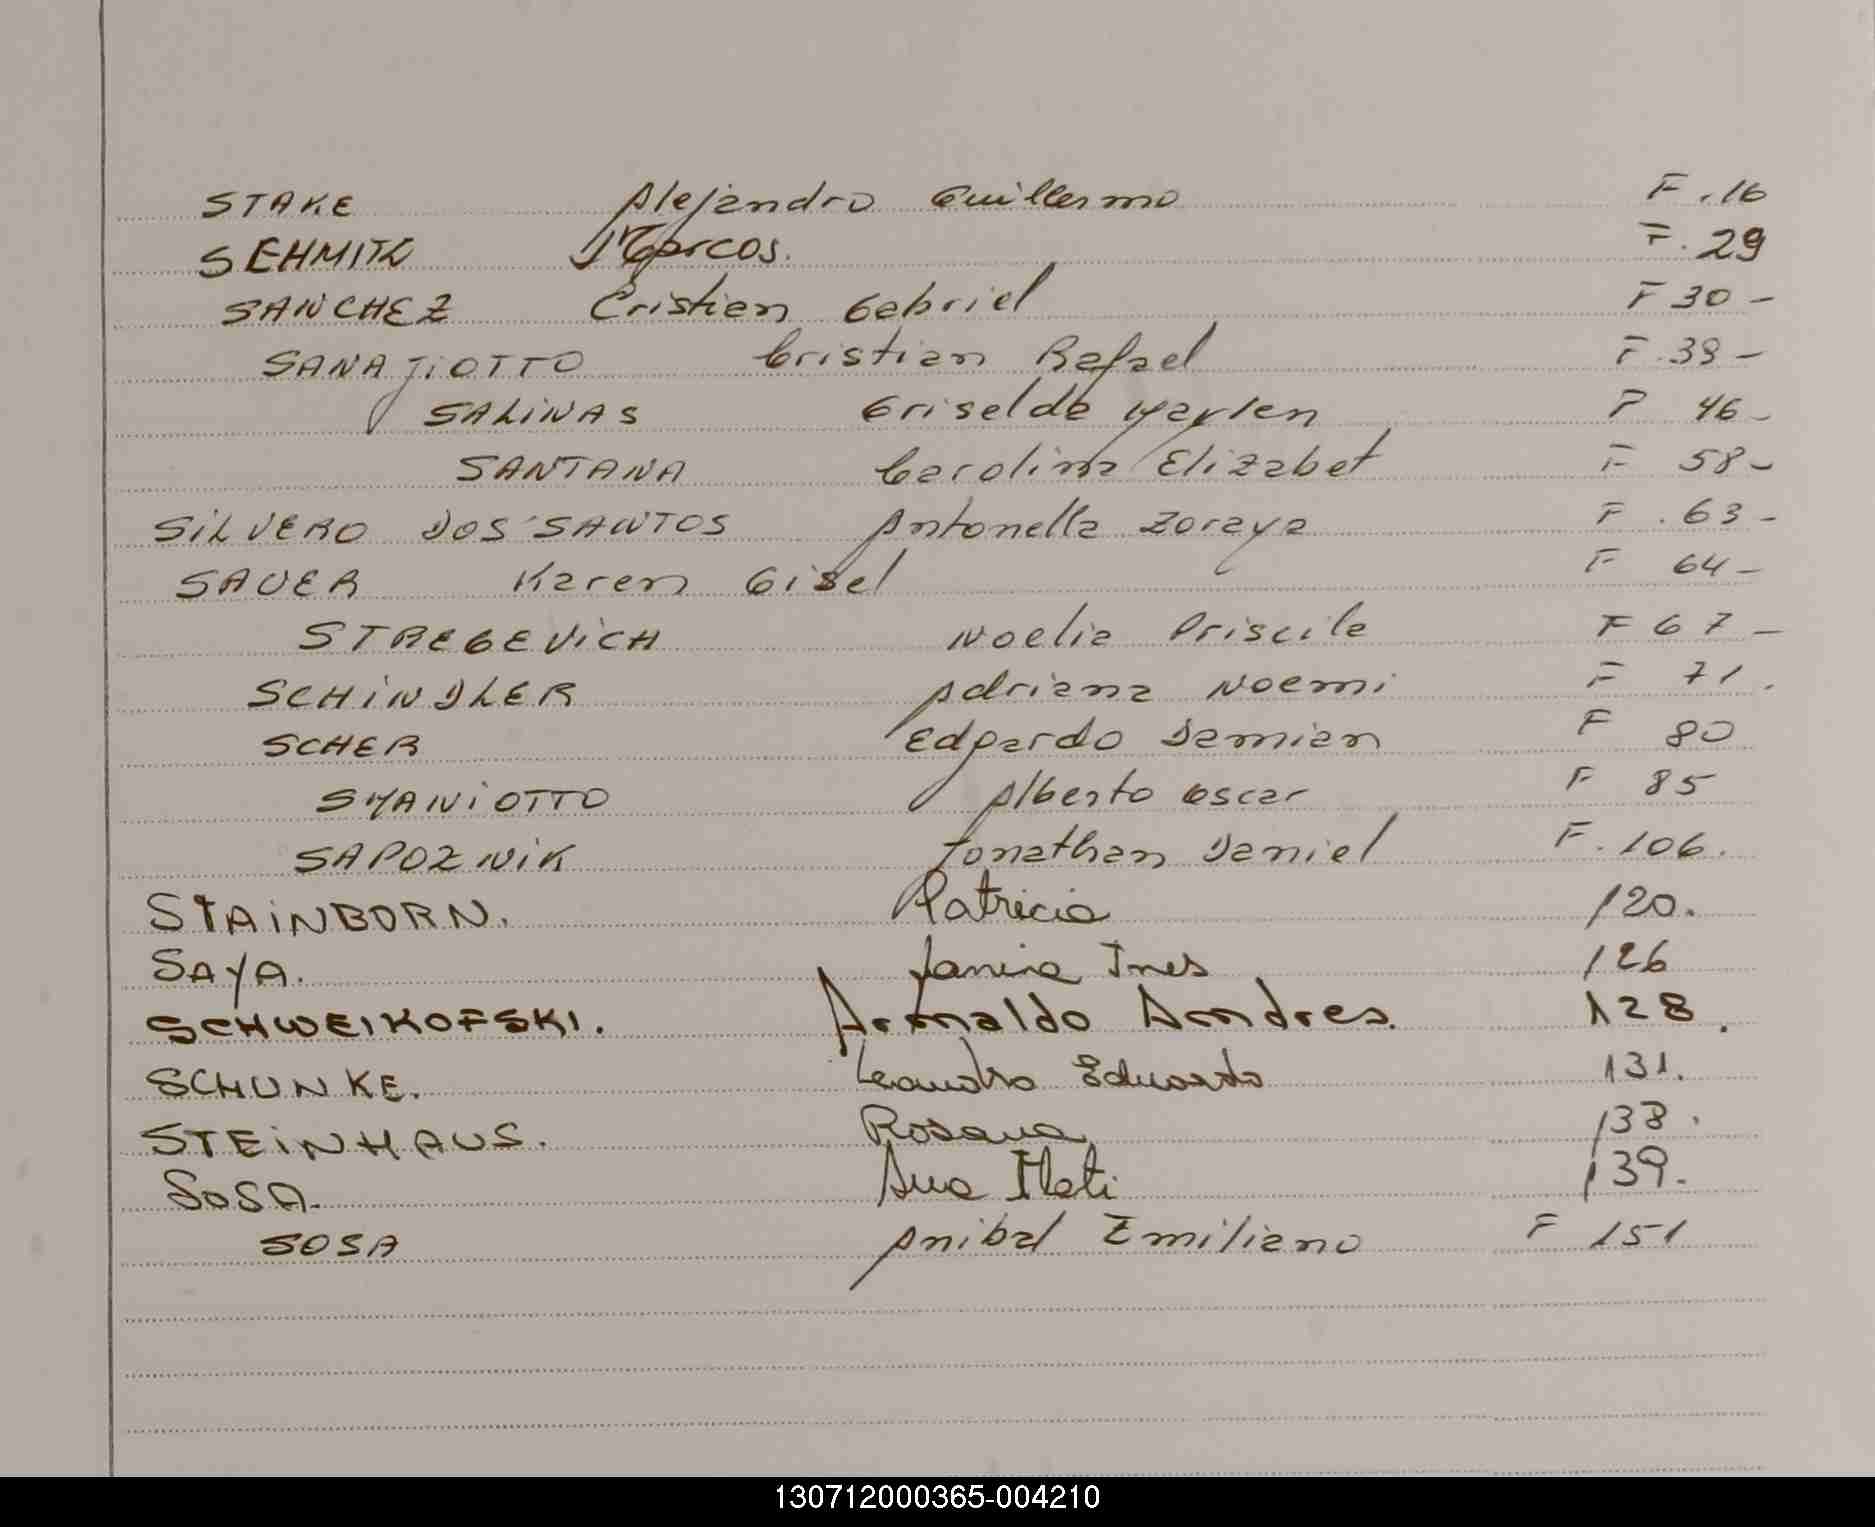 STAKE Alejandro Guillermo F.16
SEHMITK Marcos. F.29
SANCHEZ Cristian Gabriel F 30 -
SANAGIOTTO Cristian Rafael F.39 -
SALINAS Griselda Marlen F 46 -
SANTANA Carolina Elizabet F 58 -
SILVERO DOS SANTOS Antonella Zoraya F. 63 -
SAUER Karen Gisel F 64 -
STREGEVICH Noelia Priscila F 67 -
SCHINDLER Adriana Noemi F 71.
SCHER Edgardo Damian F 80
SMANIOTTO Alberto Oscar F 85
SAPOZNIK Jonathan Daniel F. 106.
STAINBORN. Patricia 120.
SAYA. Ines 126
SCHWEIKOFSKI. Arnaldo Andres. 128.
SCHUNKE. Leandro Eduardo 131.
STEINHAUS. Rosana 138.
SOSA. Ana Itati 139.
SOSA Anibal Emiliano F 151
130712000365-004210